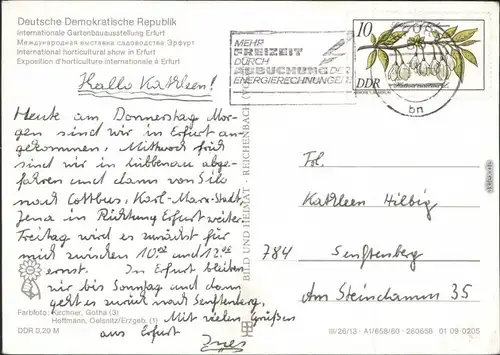 Deutsche Demokratische Republik
Internationale Gartenbauausstellung Erfurt
Международная выставка садоводства Эрфурт
International horticultural show in Erfurt
Exposition d'horticulture internationale à Erfurt
MEHR
FREIZEIT
DURCH
ABBUCHUNG DER
ENERGIERECHNUNGEN
10
DDR
bn
Hallo Kathleen!
Heute am Donnerstag Mor-
gen sind wir in Erfurt an-
gekommen. Mittwoch früh
sind wir in Lübbenau abge-
fahren und dann von
nach Cottbus, Karl-Marx-Stadt,
Jena in Richtung Erfurt weiter.
Freitag wird es zunächst für
mich zwischen 10.00 und 12.00
ernst. In Erfurt bleiben
wir bis Sonntag und dann
geht es zurück nach Senftenberg.
Mit vielen Grüßen
aus Erfurt
Ines
BILD UND HEIMAT · REICHENBACH (VOGTL)
Frl.
Kathleen Hilbig
784 Senftenberg
Am Steindamm 35
Farbfoto: Kirchner, Gotha (3)
Hoffmann, Oelsnitz/Erzgeb. (1)
DDR 0,20 M
III/26/13 · A1/658/80 · 260658 01 09 0205